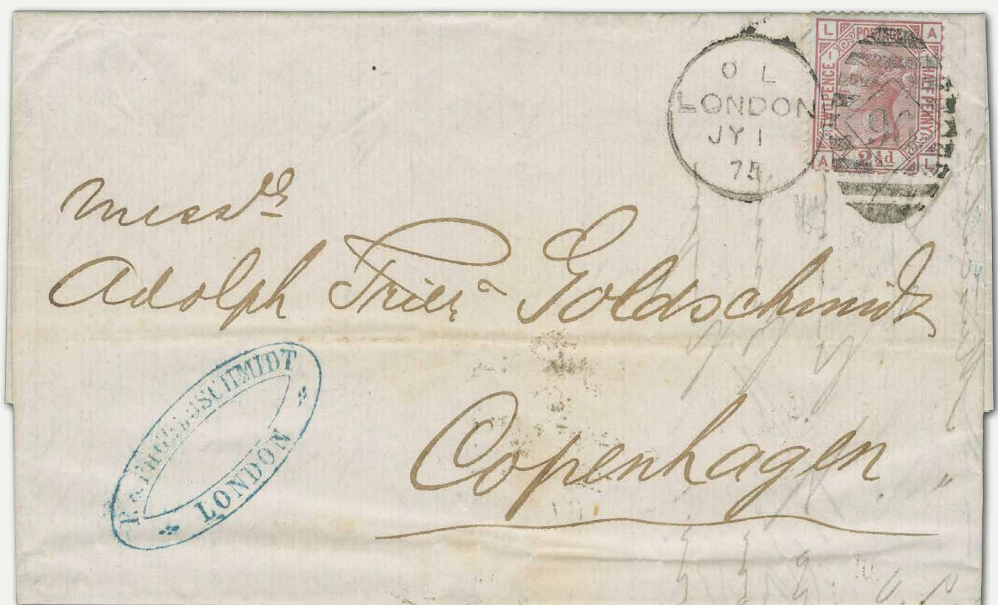 O L
LONDON
JY 1
75
L A
POSTAGE
HALF PENNY
1
96
A 2½d L
Mess.rs
Adolph Trier & Goldschmidt
Copenhagen
GOLDSCHMIDT
LONDON